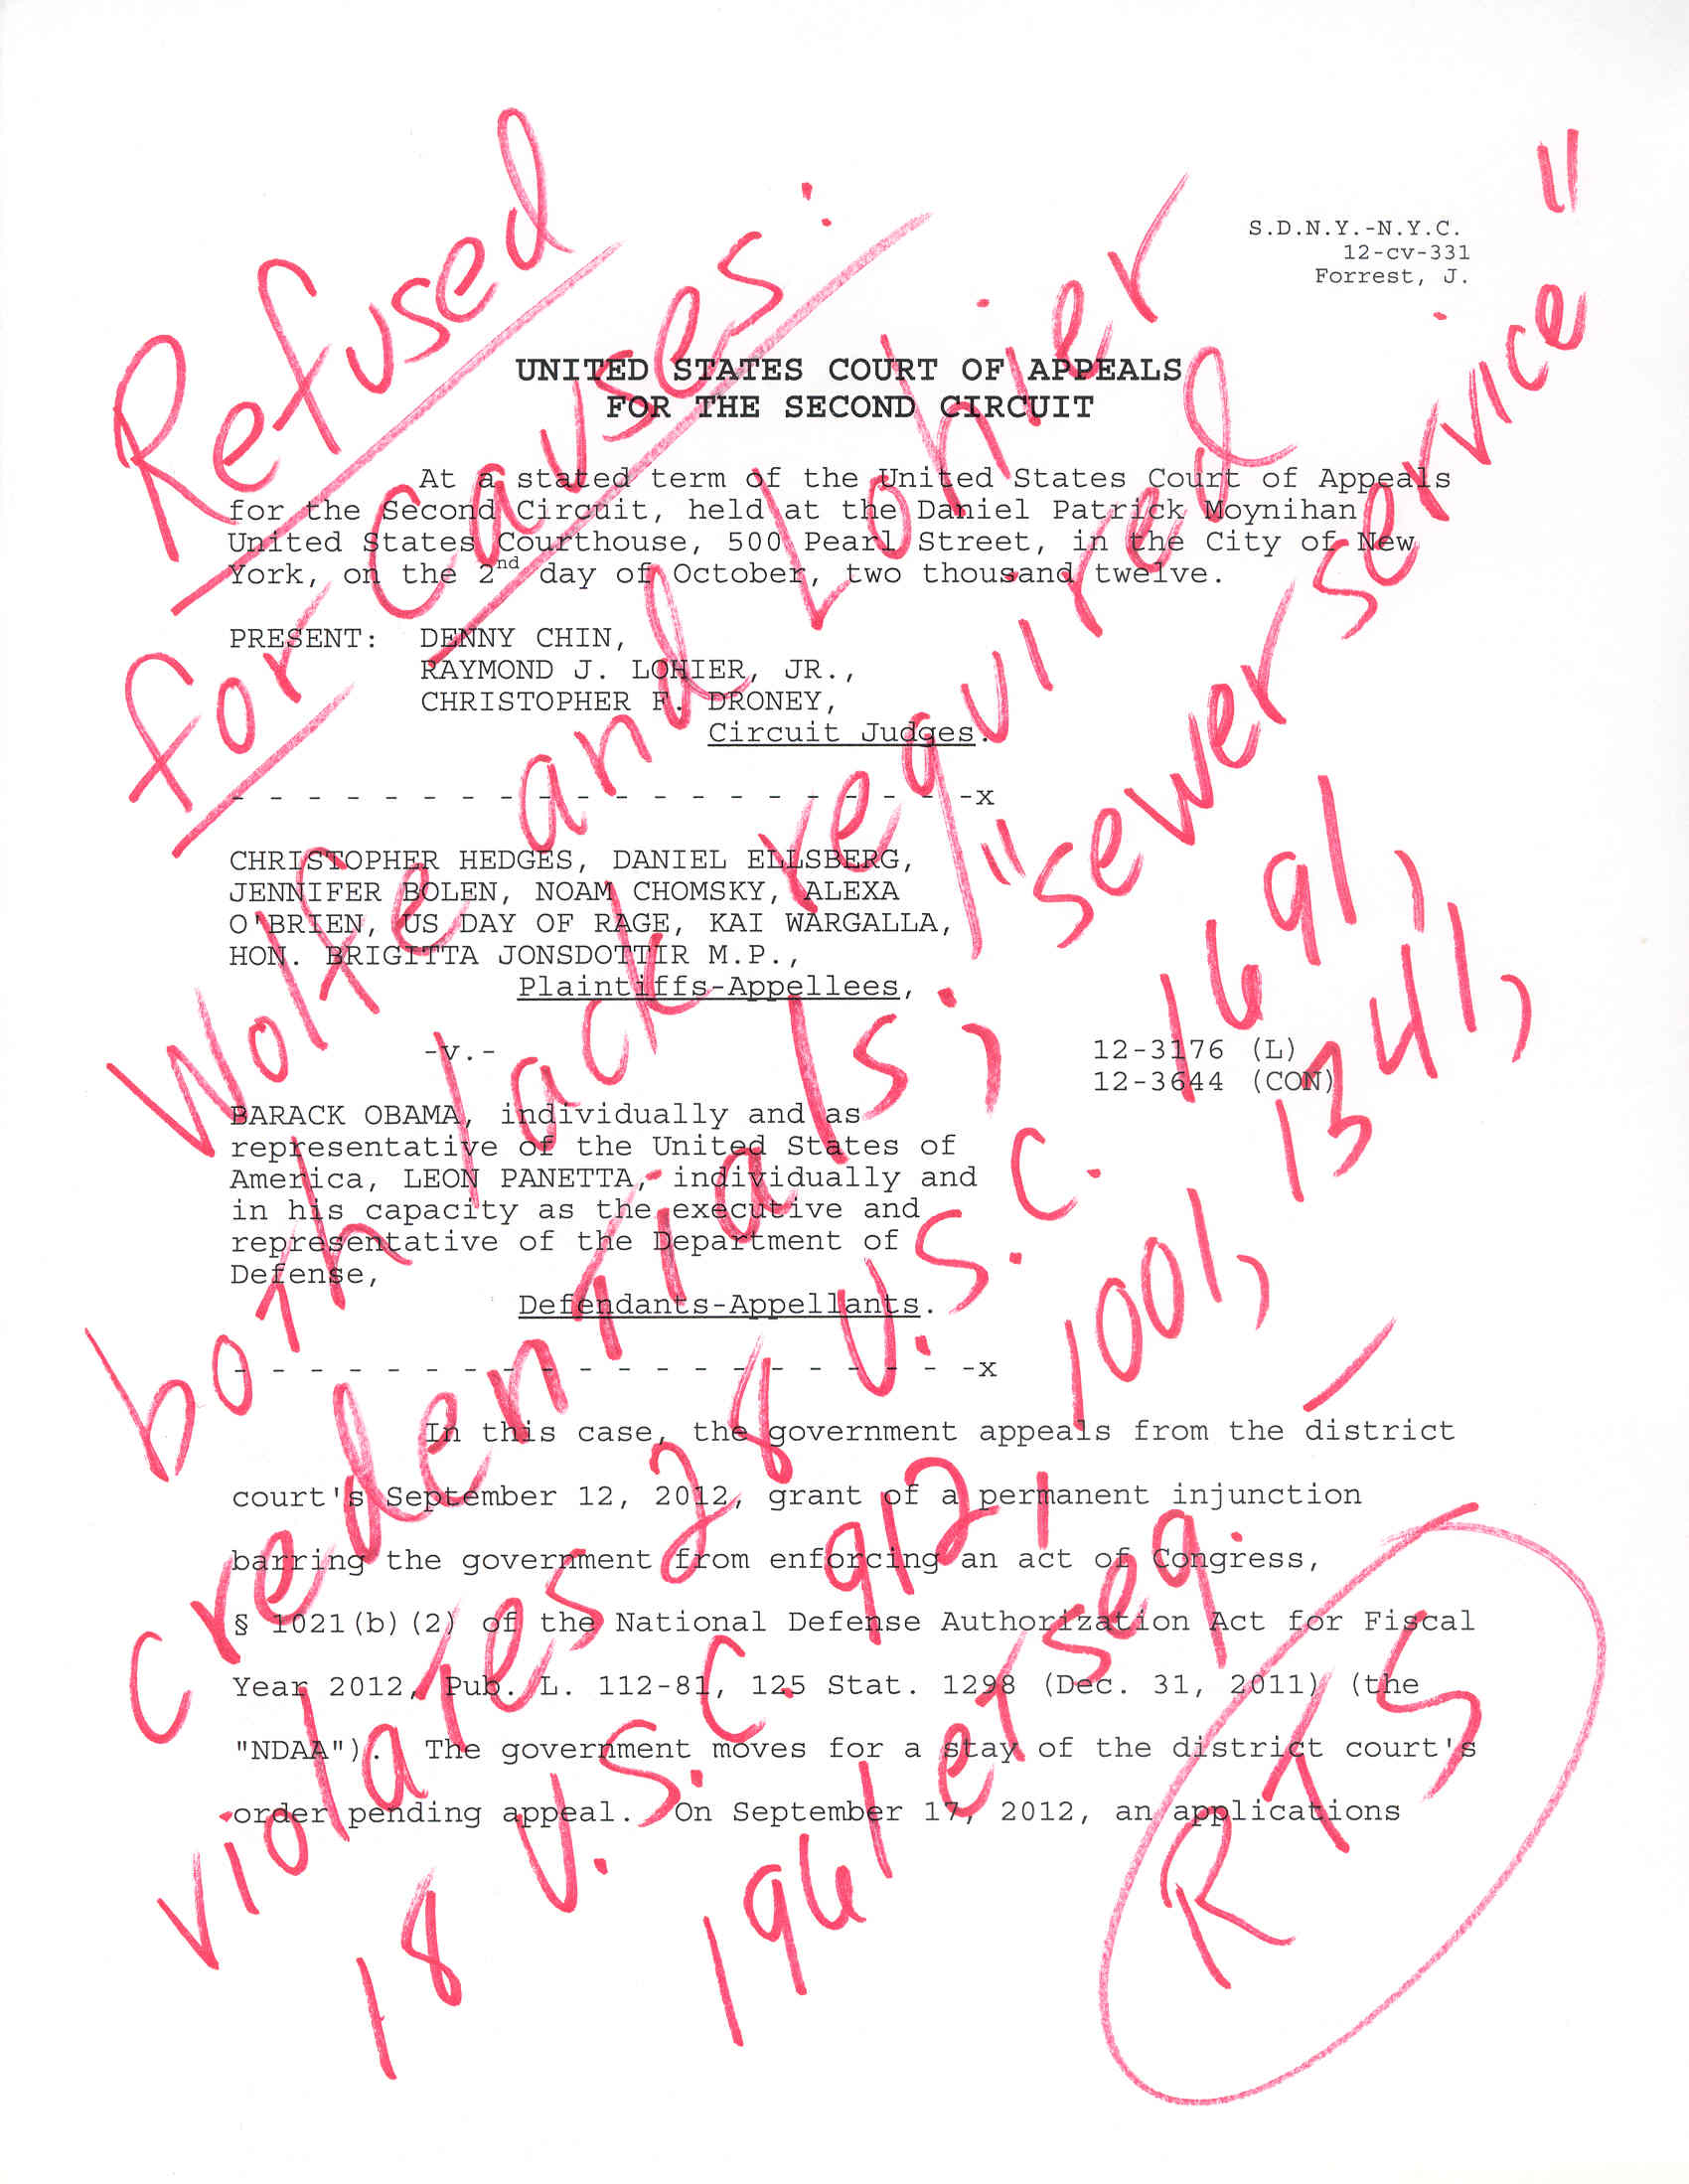 S.D.N.Y.-N.Y.C.
12-cv-331
Forrest, J.
UNITED STATES COURT OF APPEALS
FOR THE SECOND CIRCUIT
At a stated term of the United States Court of Appeals
for the Second Circuit, held at the Daniel Patrick Moynihan
United States Courthouse, 500 Pearl Street, in the City of New
York, on the 2nd day of October, two thousand twelve.
PRESENT: DENNY CHIN,
RAYMOND J. LOHIER, JR.,
CHRISTOPHER F. DRONEY,
Circuit Judges.
- - - - - - - - - - - - - - - - - - - -x
CHRISTOPHER HEDGES, DANIEL ELLSBERG,
JENNIFER BOLEN, NOAM CHOMSKY, ALEXA
O'BRIEN, US DAY OF RAGE, KAI WARGALLA,
HON. BRIGITTA JONSDOTTIR M.P.,
Plaintiffs-Appellees,
-v.-
12-3176 (L)
12-3644 (CON)
BARACK OBAMA, individually and as
representative of the United States of
America, LEON PANETTA, individually and
in his capacity as the executive and
representative of the Department of
Defense,
Defendants-Appellants.
- - - - - - - - - - - - - - - - - - - -x
In this case, the government appeals from the district
court's September 12, 2012, grant of a permanent injunction
barring the government from enforcing an act of Congress,
§ 1021(b)(2) of the National Defense Authorization Act for Fiscal
Year 2012, Pub. L. 112-81, 125 Stat. 1298 (Dec. 31, 2011) (the
"NDAA"). The government moves for a stay of the district court's
order pending appeal. On September 17, 2012, an applications
Refused
for causes:
Wolfe and Lohier
both lack required
credentials; "sewer service"
violates 28 U.S.C. 1691,
18 U.S.C. 912, 1001, 1341,
1961 et seq.
RTS